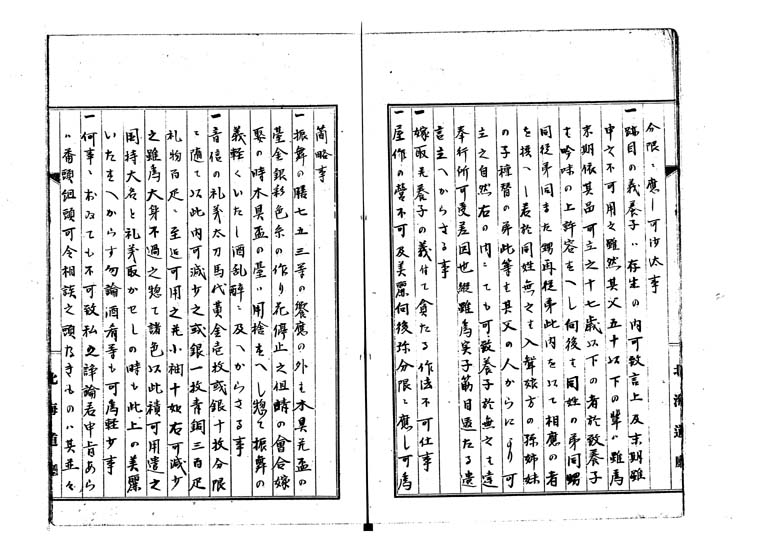 分限ニ應し可沙汰事
一跡目の義養子ハ存生の内可致言上及末期雖
申之不可用之雖然其父五十以下の輩ハ雖為
末期依其品可立之十七歳以下の者於致養子
ハ吟味の上許容すへし向後ハ同姓の弟同甥
同従弟同また甥再従弟此内を以て相應の者
を撰へし若於同姓無之ハ入聟娘方の孫姉妹
の子種替の弟此等ハ其父の人からにより可
立之自然右の内ニても可致養子於無之ハ達
奉行所可受差図也縦雖為実子筋目違たる遺
言立へからさる事
一嫁取并養子の義付て貪たる作法不可仕事
一屋作の営不可及美麗向後弥分限ニ應し可為
簡略事
一振舞の膳七五三等の饗應の外ハ木具并盃の
臺金銀彩色糸の作り花停止之但晴の會合嫁
娶の時木具盃の臺ハ用捨すへし惣て振舞の
義軽くいたし酒乱酔ニ及へからさる事
一音信の礼義太刀馬代黄金壱枚或銀十枚分限
ニ随て以此内可減少之或銀一枚青銅三百疋
礼物百疋ニ至迄可用之并小袖十如右可減少
之雖為大身不過之惣て諸色以此積可用遣之
国持大名と礼義取かせしの時も此上の美麗
いたすへからす勿論酒肴等も可為軽少事
一何事ニおゐても不可致私之諍論若申旨あら
ハ番頭組頭可令相談之頭なきものハ其並々
北海道廳